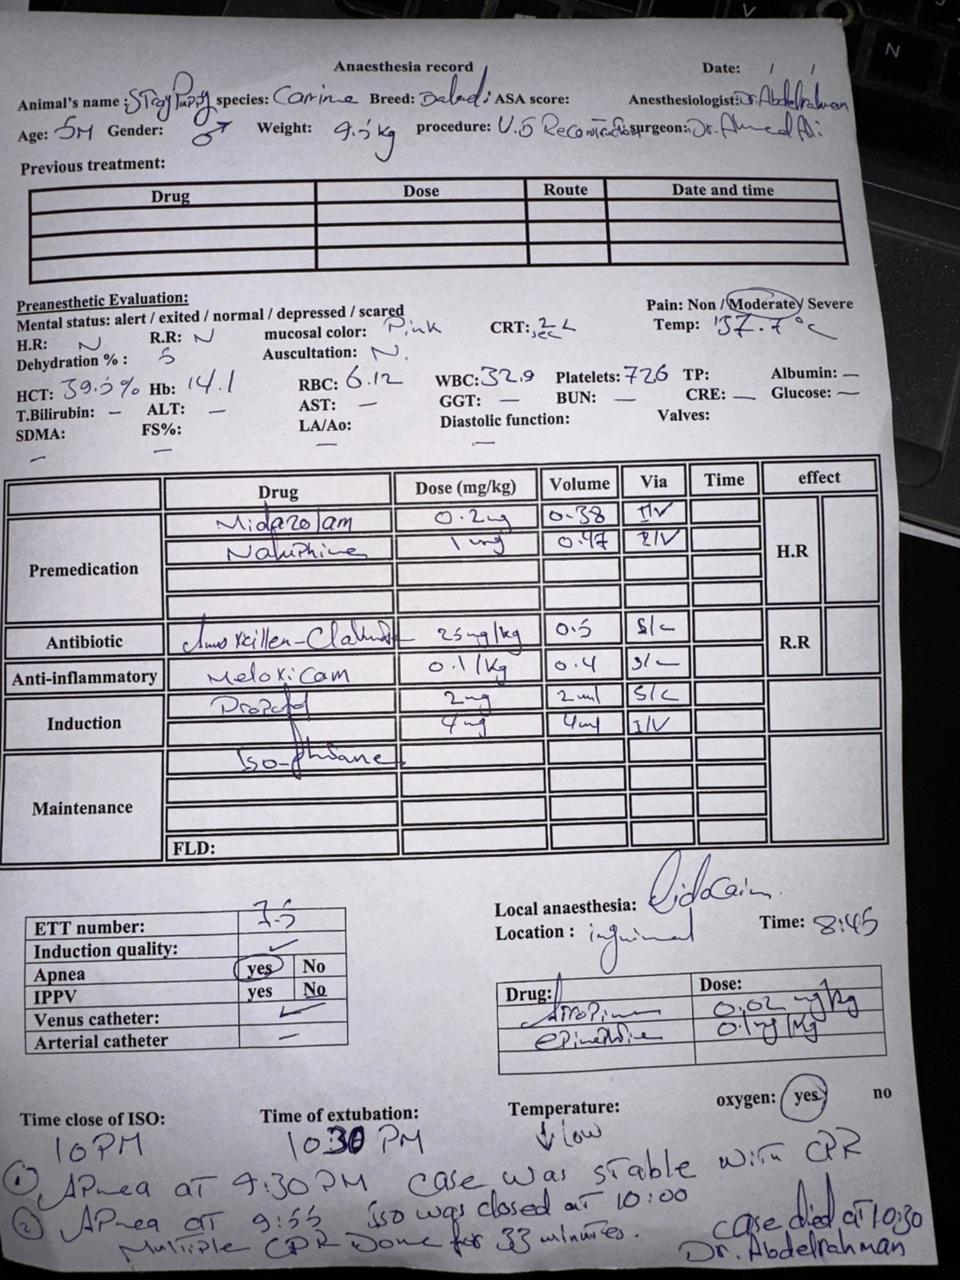 Anaesthesia record Date: / /
Animal's name: Stray Puppy species: Canine Breed: Baladi ASA score: Anesthesiologist: Dr. Abdelrahman
Age: 5M Gender: ♂ Weight: 9.5 kg procedure: U.S Reconstr surgeon: Dr. Ahmed Ali
Previous treatment:
Drug Dose Route Date and time
Preanesthetic Evaluation:
Mental status: alert / exited / normal / depressed / scared Pain: Non / Moderate / Severe
H.R: N R.R: N mucosal color: Pink CRT: 2 < sec Temp: 37.7°C
Dehydration % : 5 Auscultation: N.
HCT: 39.5% Hb: 14.1 RBC: 6.12 WBC: 32.9 Platelets: 726 TP: Albumin: —
T.Bilirubin: — ALT: — AST: — GGT: — BUN: — CRE: — Glucose: —
SDMA: — FS%: — LA/Ao: — Diastolic function: — Valves:
Drug Dose (mg/kg) Volume Via Time effect
Premedication Midazolam 0.2mg 0.38 I/V H.R
Nalbuphine 1 mg 0.47 I/V
Antibiotic Amoxicillen-Clavu 25mg/kg 0.5 S/c R.R
Anti-inflammatory Meloxicam 0.1/kg 0.4 S/c
Induction Propofol 2mg 2ml S/C
4mg 4ml I/V
Maintenance Iso-flurane
FLD:
ETT number: 7.5
Induction quality: ✓
Apnea yes No
IPPV yes No
Venus catheter: ✓
Arterial catheter —
Local anaesthesia: Lidocain.
Location : inguinal Time: 8:45
Drug: Dose:
Atropine 0.02 mg/kg
epinephrine 0.1mg/kg
Time close of ISO: Time of extubation: Temperature: oxygen: yes no
10 PM 1030 PM ↓ low
① Apnea at 9:30 PM case was stable with CPR
② Apnea at 9:55 iso was closed at 10:00
Multiple CPR Done for 33 minutes. case died at 10:30
Dr. Abdelrahman